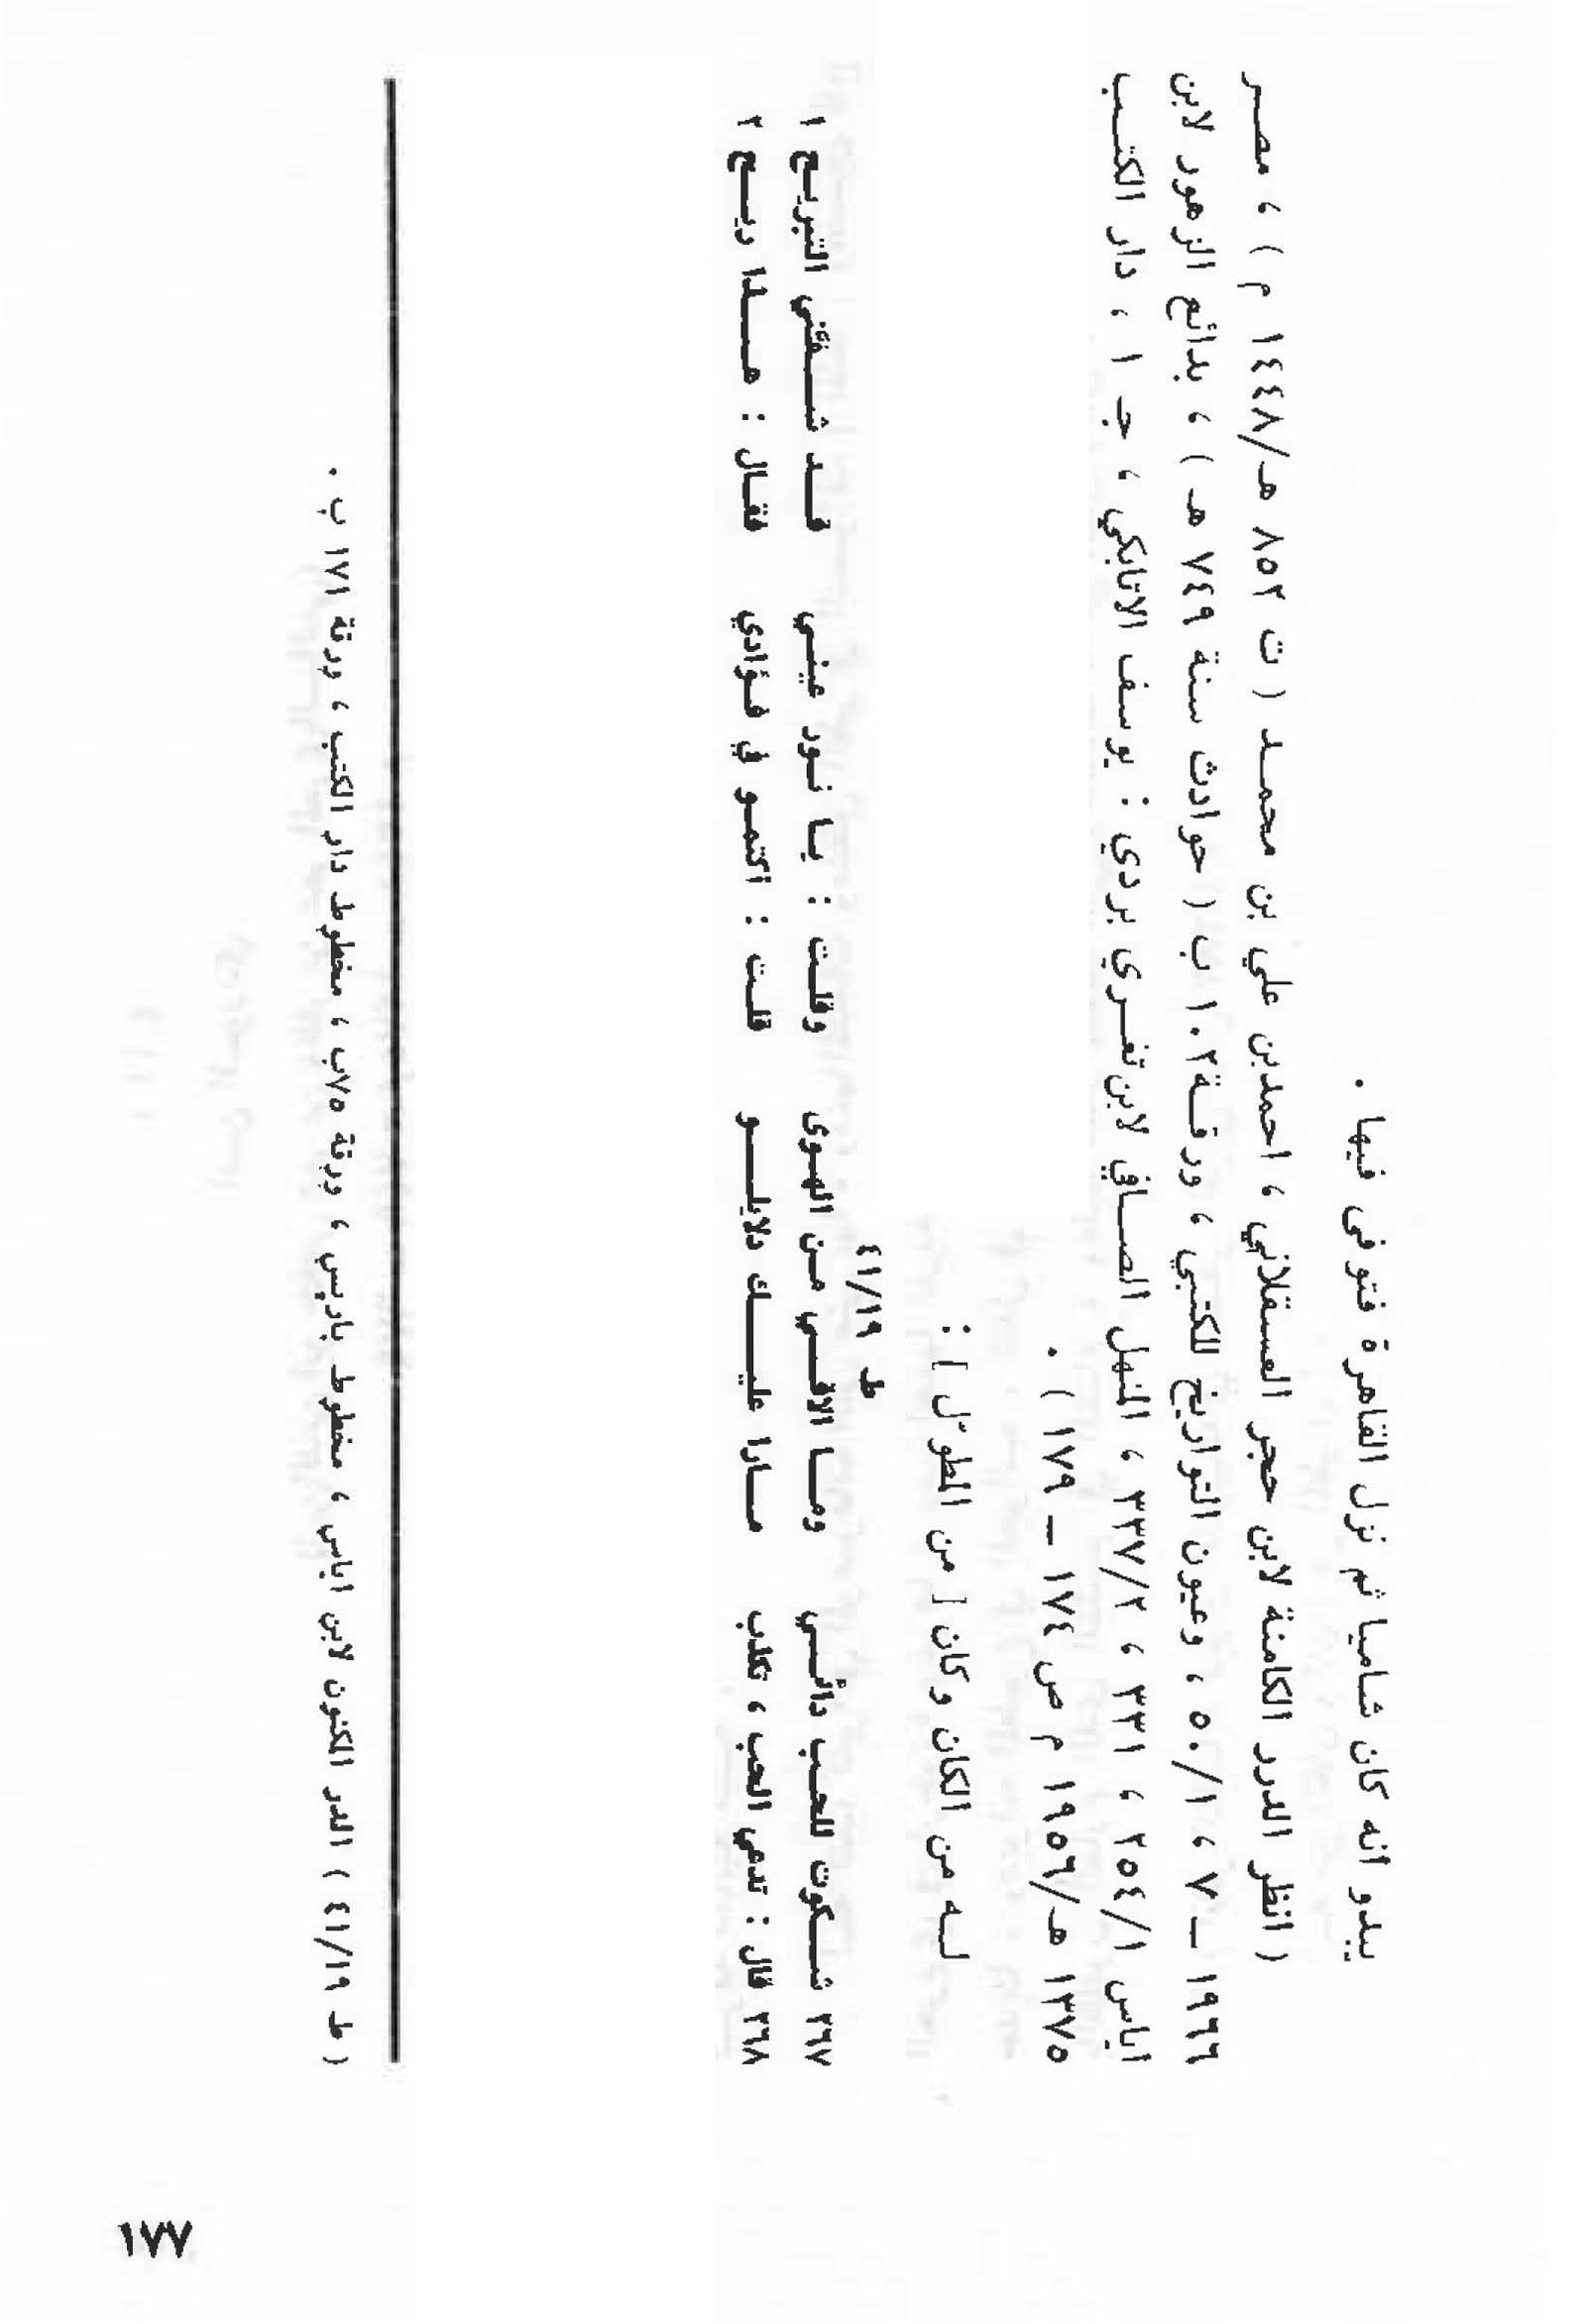 يبدو انه كان شاميا ثم نزل القاهرة فتوفى فيها .
( انظر الدرر الكامنة لابن حجر العسقلاني ، احمدبن علي بن محمـد ( ت ٨٥٢ هـ/١٤٤٨ م ) ، مصـر
١٩٦٦ ــ ٧ ، ٥٠/١ ، وعيون التواريخ للكتبي ، ورقـة١٠٢ ب ( حوادث سنة ٧٤٩ هـ ) ، بدائع الزهور لابن
اياس ٢٥٤/١ ، ٣٣١ ، ٣٣٧/٢ ، المنهل الصـافي لابن تغـري بردي : يوسف الاتابكي ، جـ ١ ، دار الكتـب
١٣٧٥ هـ/١٩٥٦ م ص ١٧٤ ــ ١٧٩ ) .
لـه من الكان وكان [ من المطوّل ] :
ط ٤١/١٩
٣٦٧ شـكوت للحـب دائـي ومـا الاقـي مـن الهـوى وقلـت : يـا نـور عينـي قـد شـفّني التبريـح ١
٣٦٨ قال : تدعي الحب ، تكذب مـارا عليـك دلايلـو قلـت : اكتمـو في فـؤادي فقـال : هـذا ريـح ٢
( ط ٤١/١٩ ) الدر المكنون لابن اياس ، مخطوط باريس ، ورقة ٧٥ب ، مخطوط دار الكتب ، ورقة ١٧١ ب .
١٧٧